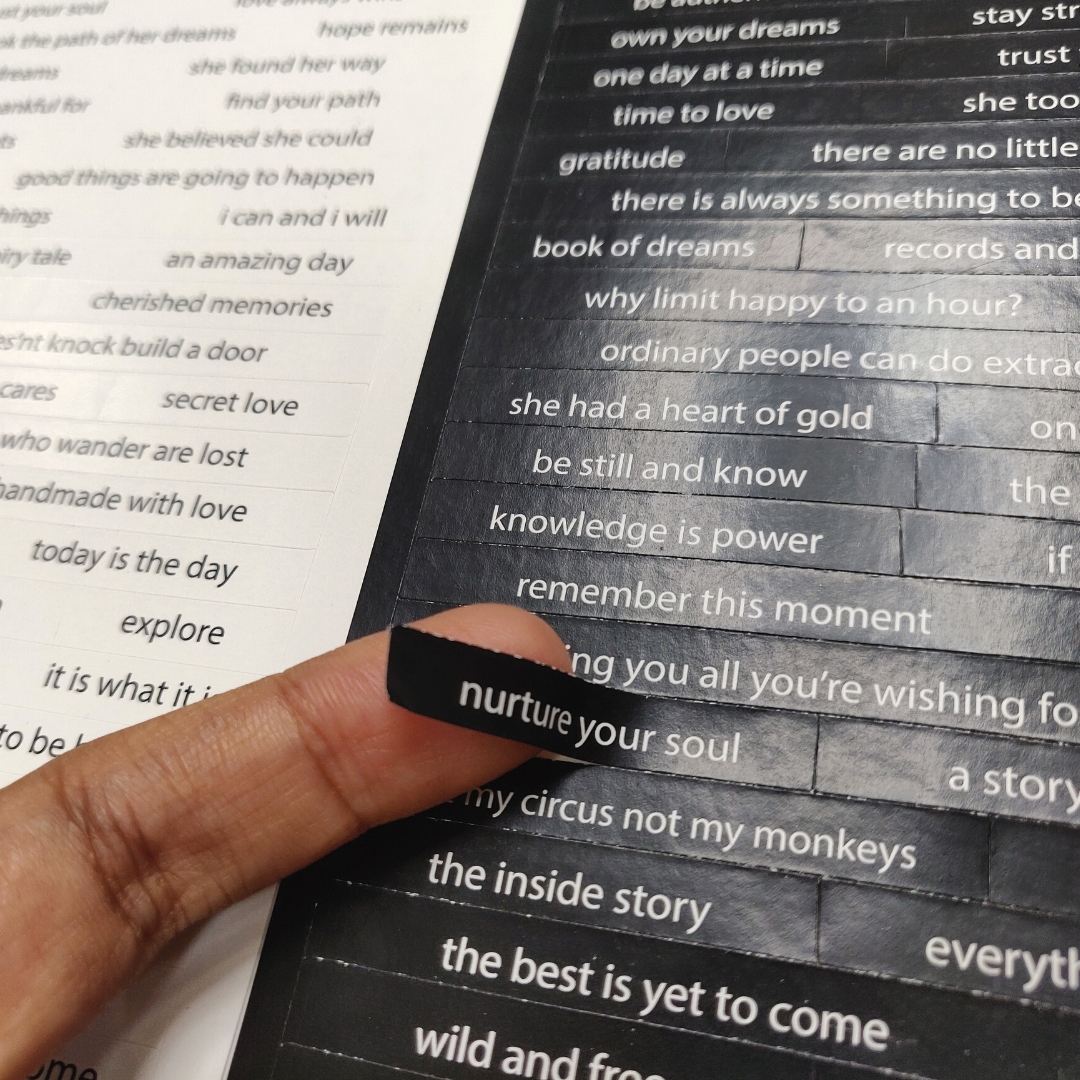 your soul
the path of her dreams hope remains
dreams she found her way
find your path
she believed she could
good things are going to happen
i can and i will
tale an amazing day
cherished memories
es'nt knock build a door
cares secret love
who wander are lost
handmade with love
today is the day
explore
it is what it
to be
own your dreams stay
one day at a time trust
time to love she
gratitude there are no little
there is always something to
book of dreams records and
why limit happy to an hour?
ordinary people can do
she had a heart of gold
be still and know the
knowledge is power if
remember this moment
you all you're wishing
nurture your soul a story
my circus not my monkeys
the inside story
the best is yet to come
wild and